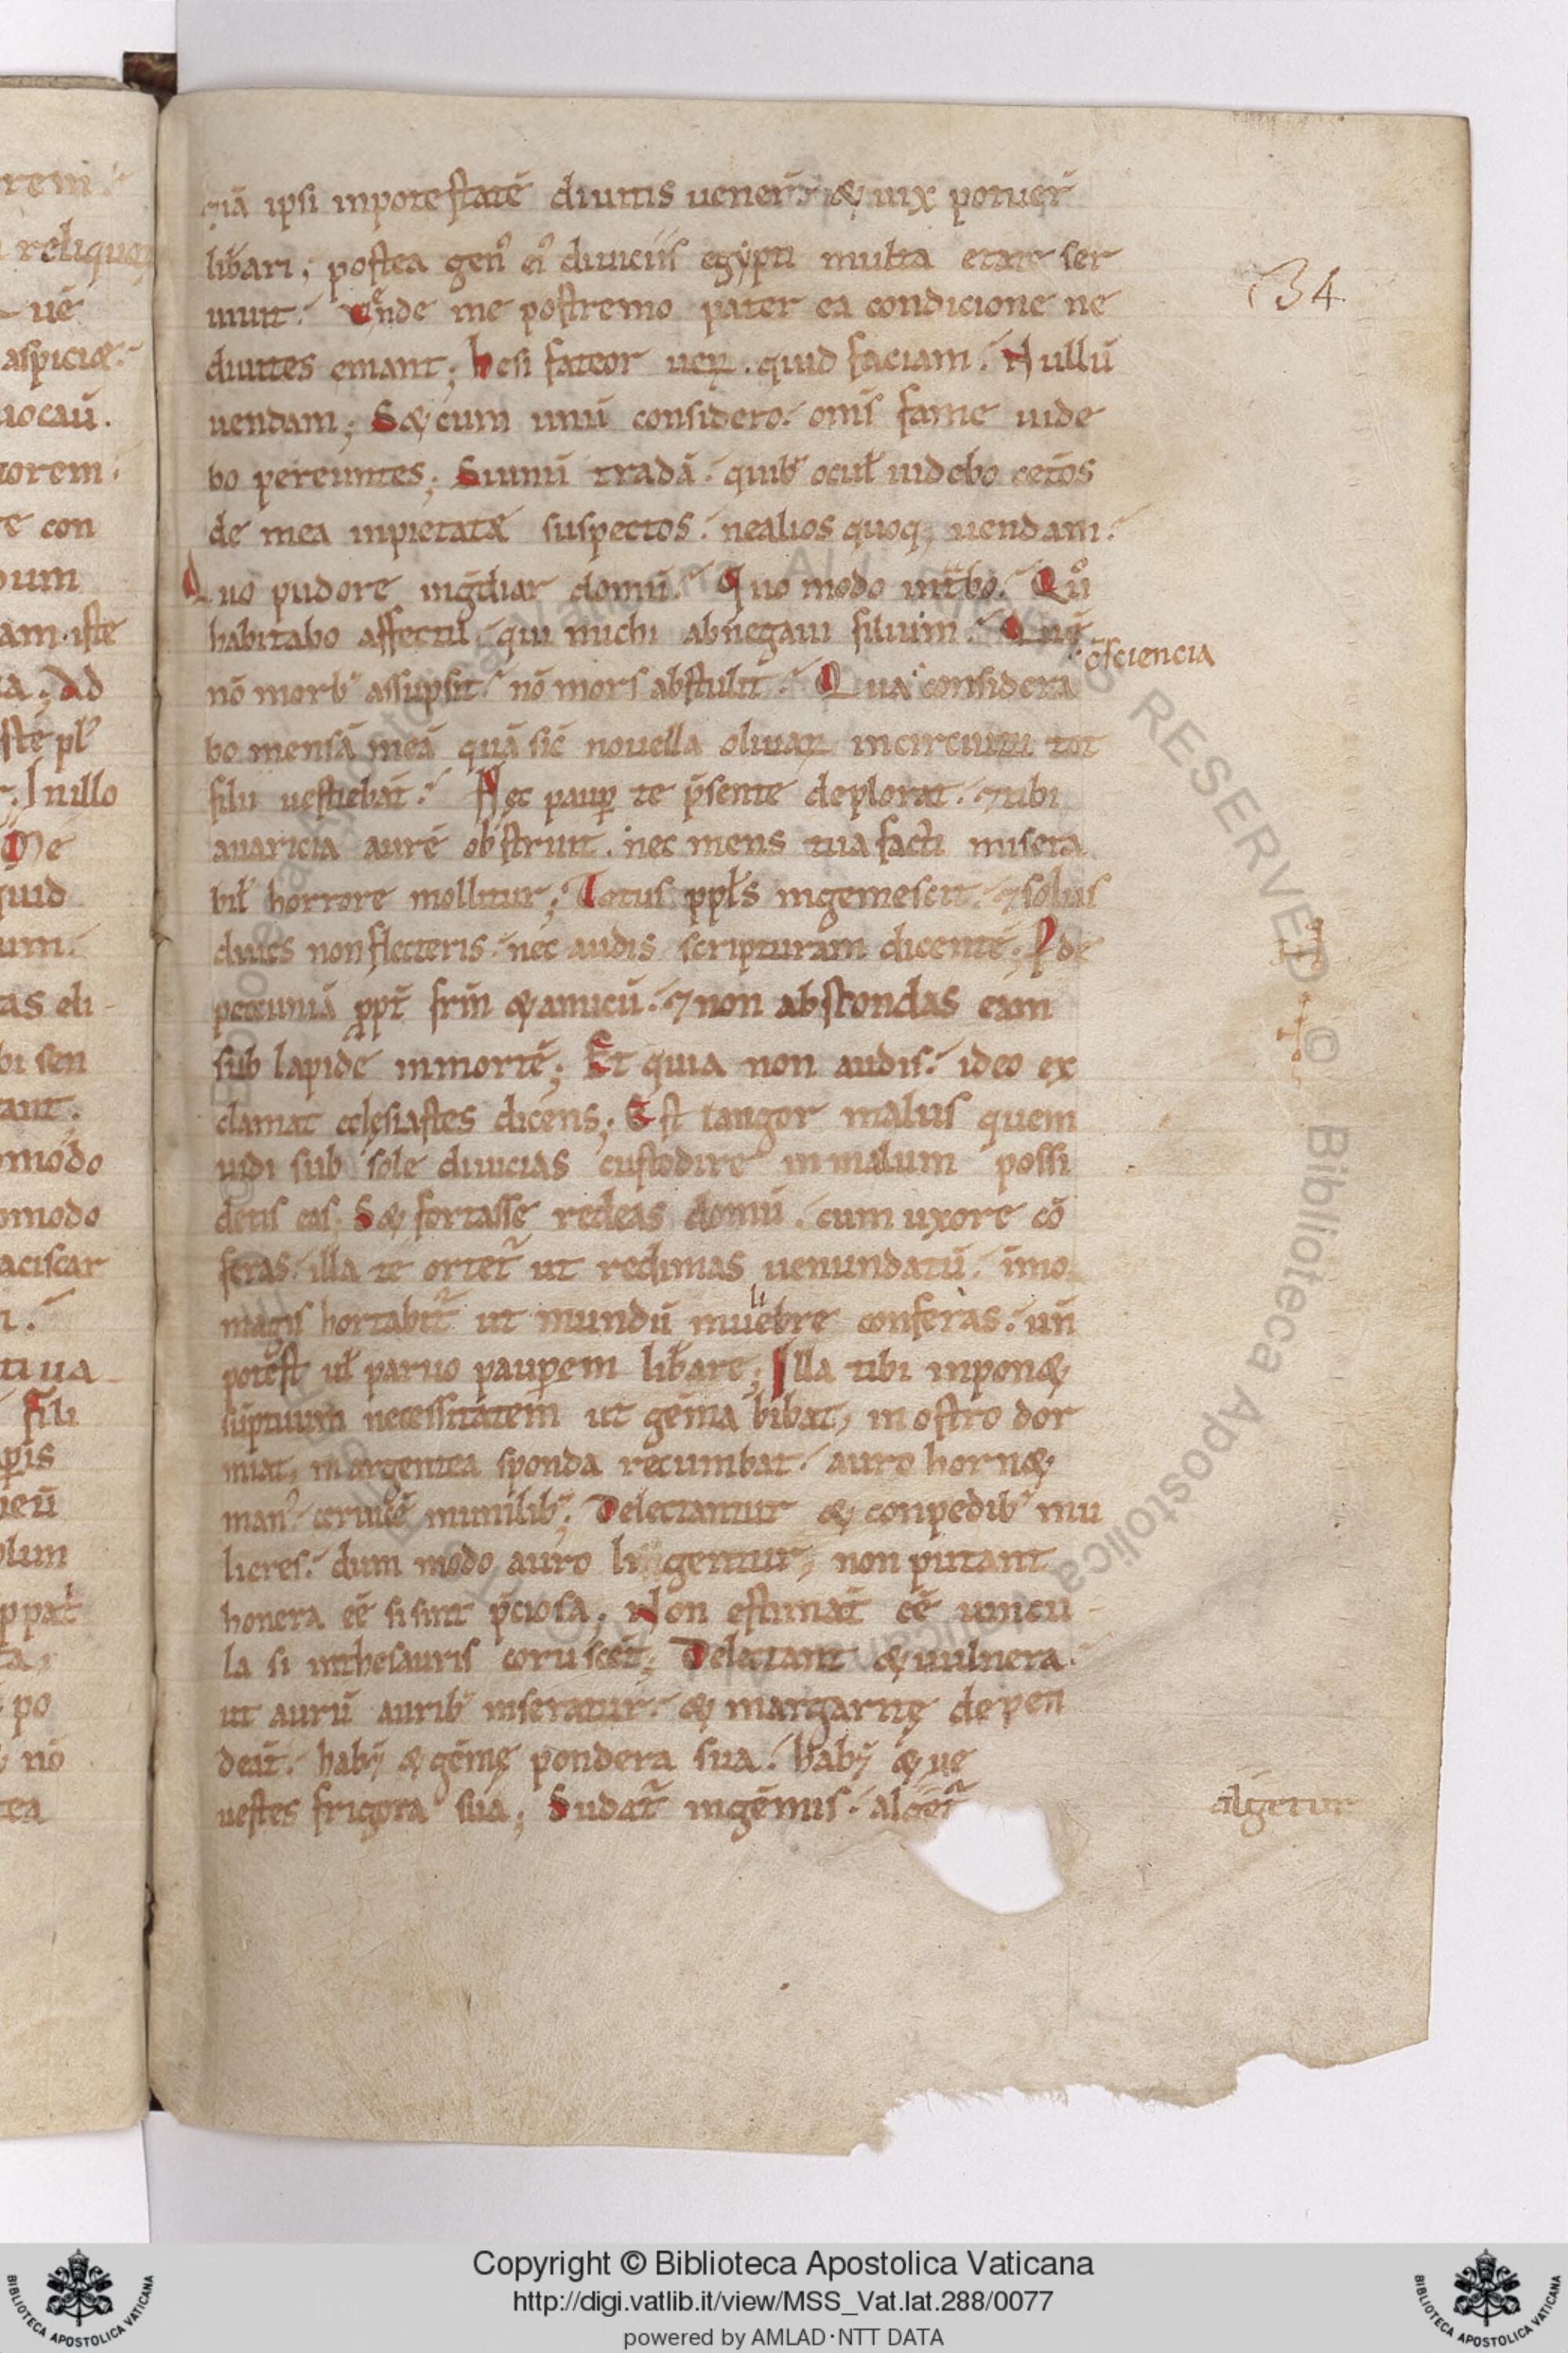 quā ipsi inpotestatē diuitis uener̄ & uix potuer̄
lib̄ari; postea gen᾽ ei᾽ diuiciis egypti multa etate ser
uiuit. Vende me postremo pater ea condicione ne
diuites emant; hesi fateor ueꝝ. quid faciam. Nullū
uendam; S& cum unū considero. om̄s fame uide
bo pereuntes; Siunū tradā. quib᾽ ocul̄ uidebo cet̄os
de mea inpietat& suspectos. nealios quoq; uendam.
Quo pudore inḡdiar domū. Quo modo int̄bo. Quō
habitabo affectu. qui michi abnegaui filium. Quē
c̄osciencia
nō morb᾽ assūpsit. nō mors abstulit. Qua considera
bo mensā meā quā sic̄ nouella oliuaꝝ incircuitu tot
filii uestiebāt. Nec paup̄ te p̄sente deplorat. ⁊tibi
auaricia aurē obstruit. nec mens tua facti misera
bil̄ horrore mollitur; Totus ppl̄s ingemescit. ⁊solus
diues nonflecteris. nec audis scripturam dicentē. Pde
pecuniā ꝓpt̄ frm̄ & amicū. ⁊non abscondas eam
sub lapide inmortē; Et quia non audis. ideo ex
clamat eclesiastes dicens; Est langor malus quem
uidi sub sole diuicias custodire inmalum possi
detis eas. S& fortasse redeas domū. cum uxore cō
feras. illa te ortet᾽ ut redimas uenundatū. īmo
magis hortabit᾽ ut mundū muliebre conferas. un̄
potest ul̄ paruo paup̄em lib̄are; Illa tibi inpon&
sūptuum necessitatem ut gēma bibat, in ostro dor
miat, inargentea sponda recumbat. auro horn&
man᾽. ceruicē munilib᾽; Delectantur & conpedib᾽ mu
lieres. dum modo auro ligentur, non putant
honera eē sisint p̄ciosa; Non estimāt eē uincu-
la si inthesauris coruscēt; Delectant & uulnera.
ut aurū aurib᾽ inseratur. & margaritę depen
deāt. habn̄ & gēmę pondera sua. habn̄ & ue
uestes frigora sua; Sudat᾽ ingēmis. alget᾽
algetur
34
© Biblioteca Apostolica Vaticana. ALL RIGHTS RESERVED
Copyright © Biblioteca Apostolica Vaticana
http://digi.vatlib.it/view/MSS_Vat.lat.288/0077
powered by AMLAD·NTT DATA
BIBLIOTECA APOSTOLICA VATICANA
BIBLIOTECA APOSTOLICA VATICANA